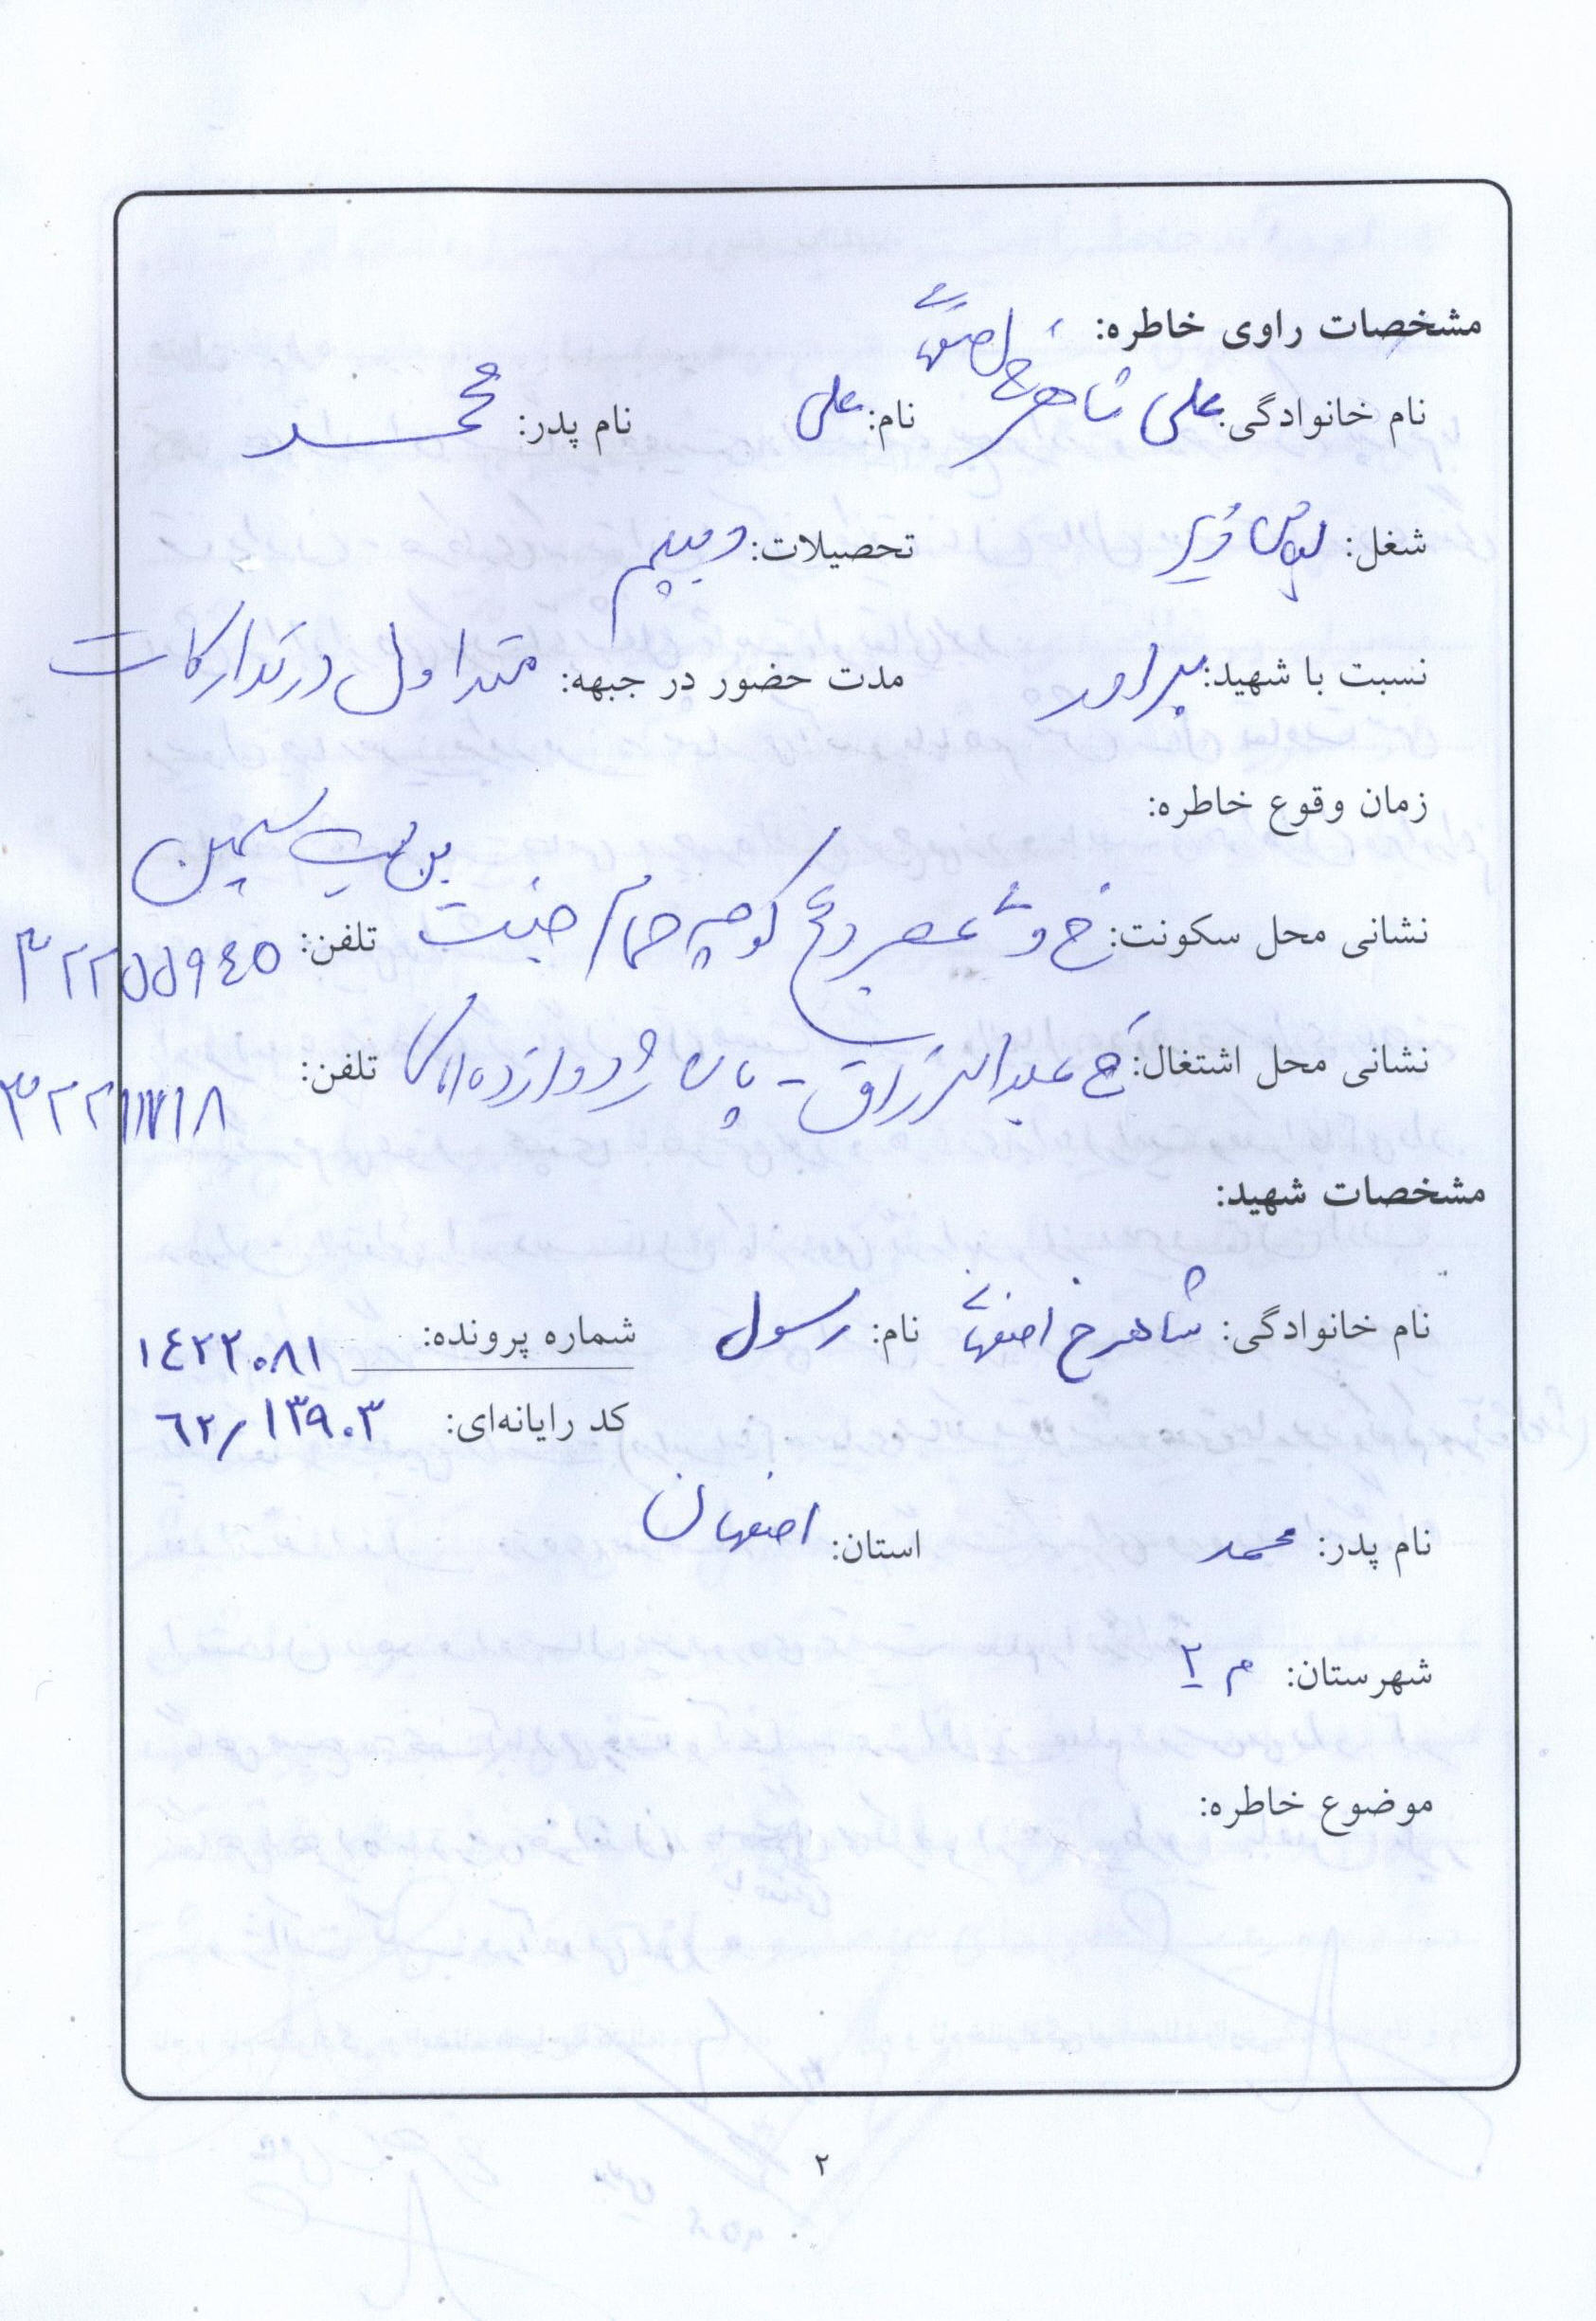 مشخصات راوی خاطره:
نام خانوادگی: علی شاهرخ اصفهانی نام: علی نام پدر: محمد
شغل: تحصیلات: دیپلم
نسبت با شهید: برادر مدت حضور در جبهه: متداول در تدارکات
زمان وقوع خاطره:
بن بست سیمین
نشانی محل سکونت: خ کوچه حمام جنت تلفن: ۳۲۲۵۵۹۴۵
نشانی محل اشتغال: خ عبدالرزاق - پاساژ دوازده تلفن: ۳۲۲۱۱۷۱۸
مشخصات شهید:
نام خانوادگی: شاهرخ اصفهانی نام: رسول شماره پرونده: ۱۴۲۲۰۸۱
کد رایانه‌ای: ۶۲/۱۳۹۰۳
نام پدر: محمد استان: اصفهان
شهرستان: م ۲
موضوع خاطره:
۲